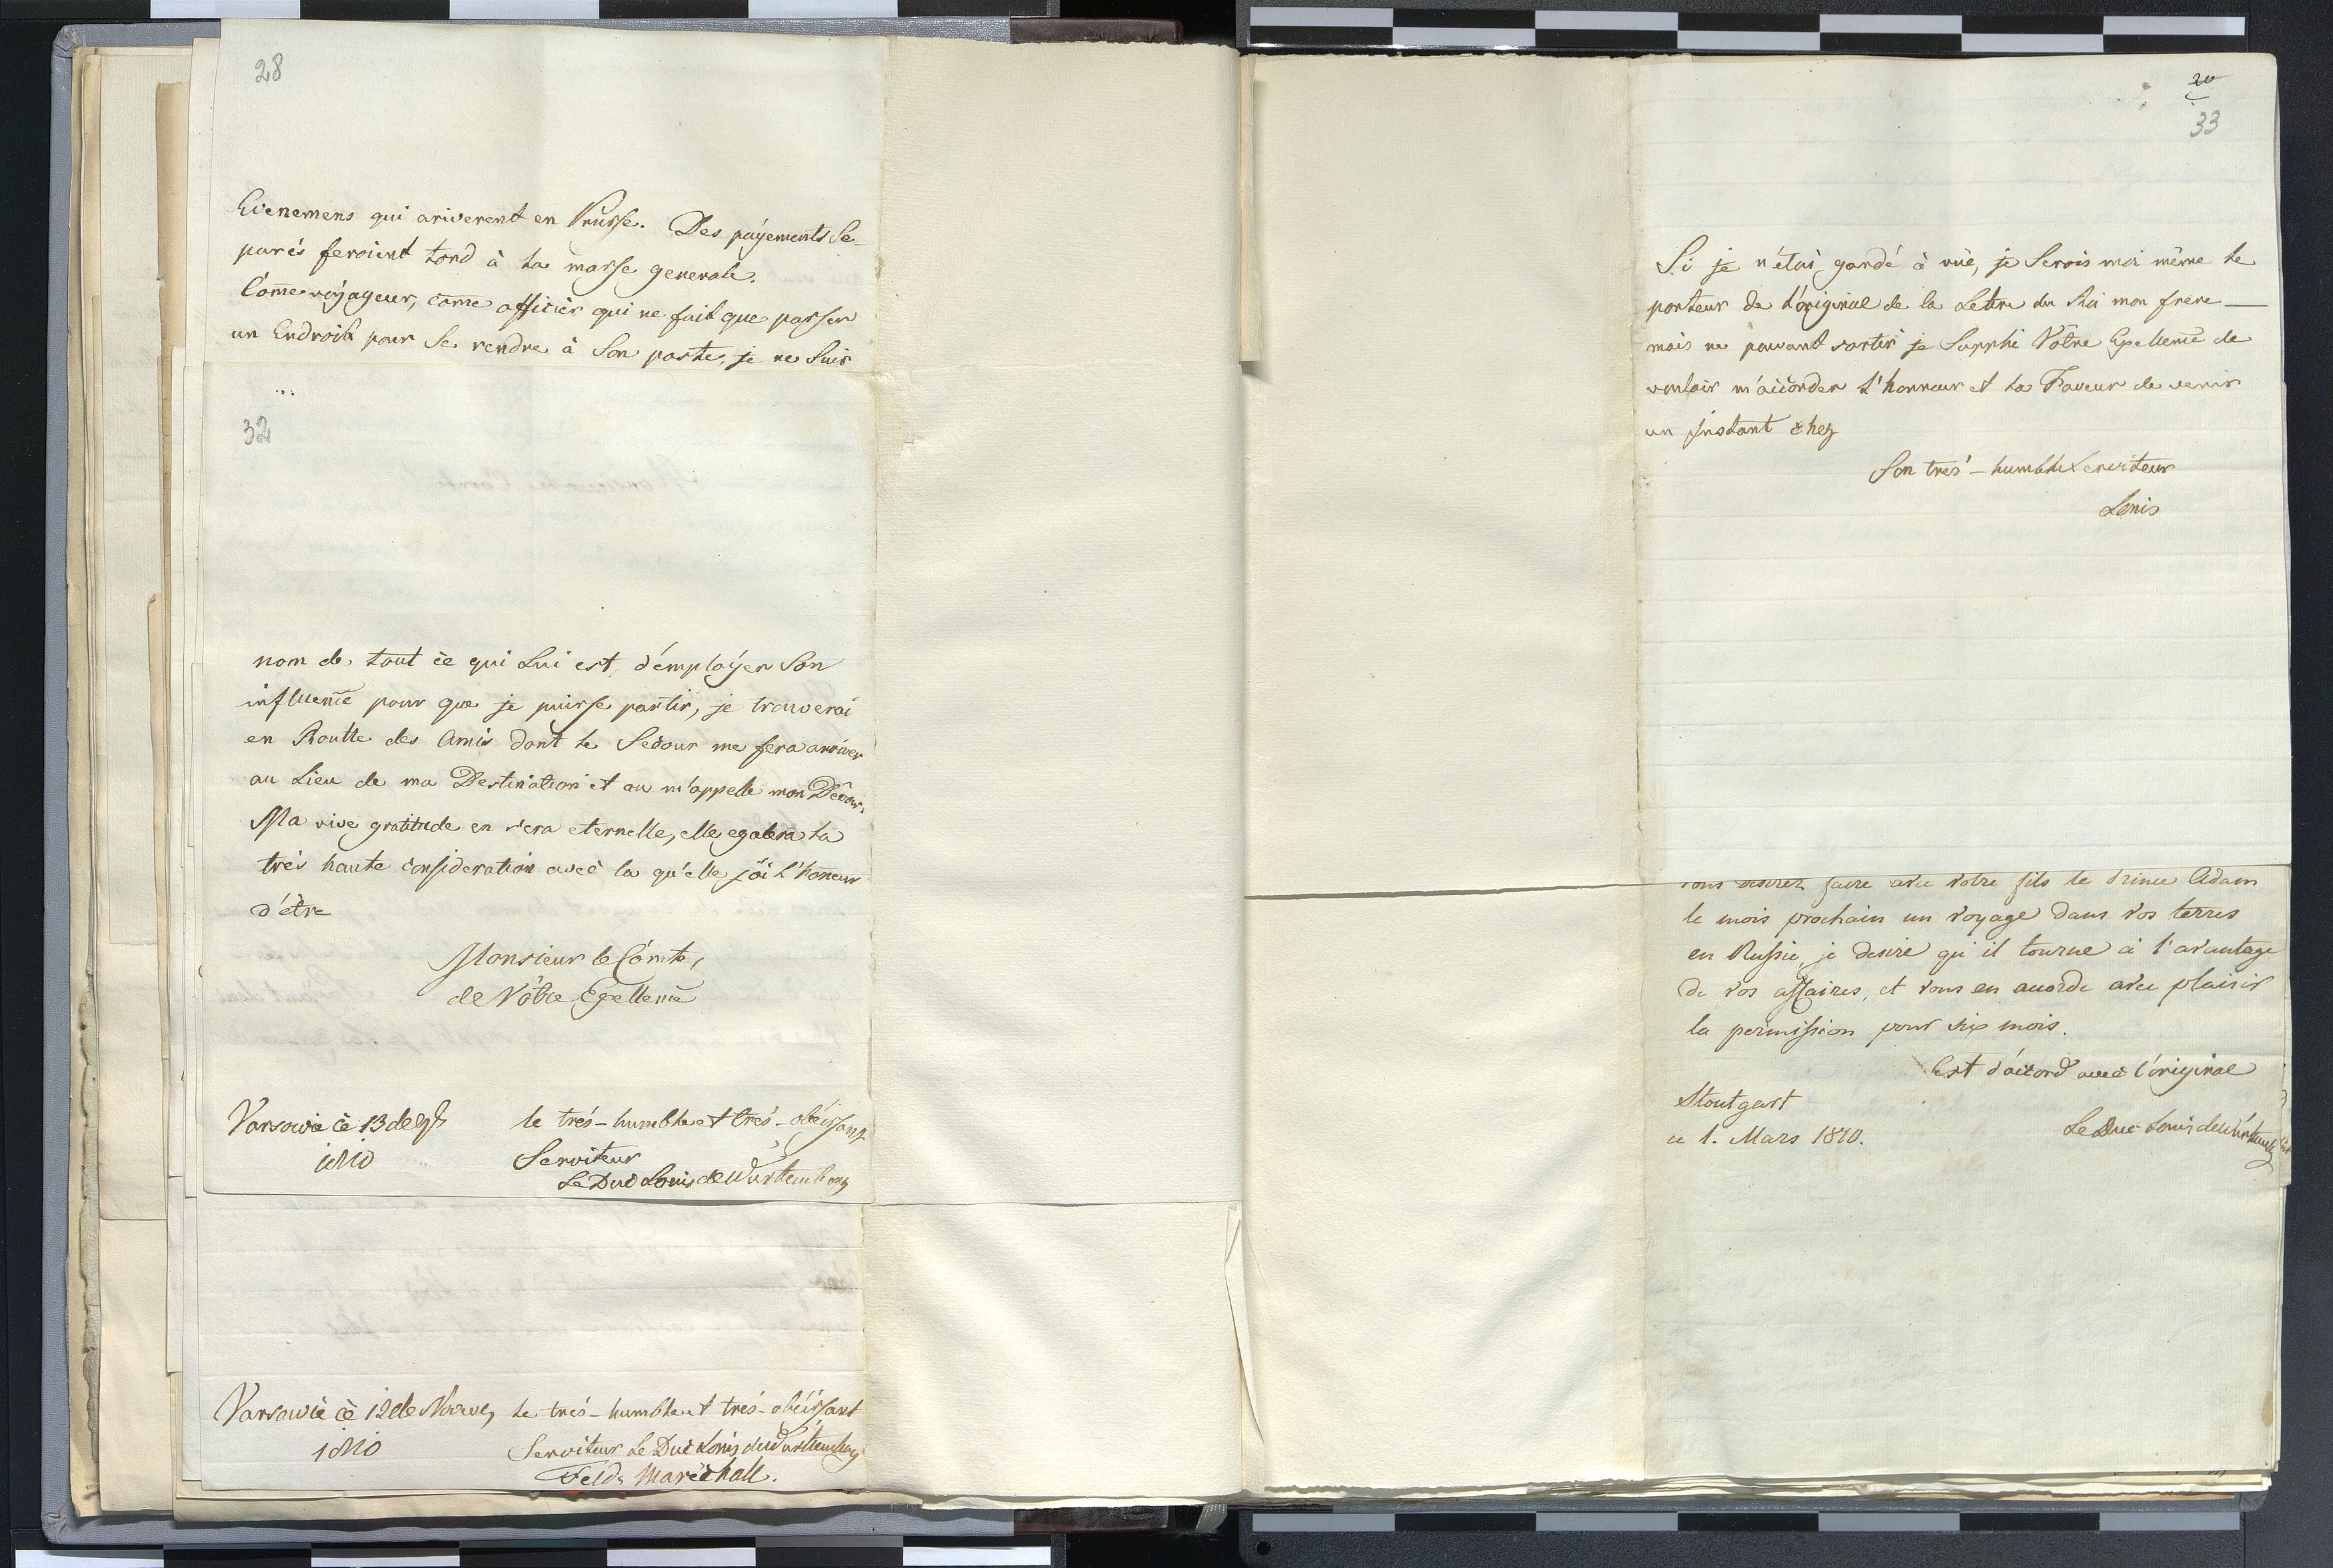 28
Evenemens qui ariverent en Prusse. Des payements Se-
parés feroient tord à la masse generale.
Com̄e voyageur, com̄e officier qui ne fait que passer
un Endroit pour Se rendre à Son poste, je ne Suis
32
nom de tout ce qui Lui est, d'employer Son
influence pour que je puisse partir, je trouverai
en Routte des Amis dont le Secour me fera arriver
au Lieu de ma Destination et ou m'appelle mon Devoir.
Ma vive gratitude en sera eternelle, elle egalera la
très haute consideration avec la qu'elle j'ai L'hon̄eur
d'être
Monsieur le Comte,
de Vôtre Excellence
Varsovie ce 13 de
1810
le très-humble et très-obéissant
Serviteur
Le Duc Louis de Würtemberg
Varsovie ce 12 de Novem
1810
le très-humble et très-obéissant
Serviteur Le Duc Louis de Würtemberg
Feld-Maréchall.
20
33
Si je n'étais gardé à vüe, je Serois moi même le
porteur de L'original de la Lettre du Roi mon frere —
mais ne pouvant sortir je Supplie Vôtre Excellence de
vouloir m'accorder L'honneur et la Faveur de venir
un Instant chez
Son très-humble Serviteur
Louis
vous desirez faire avec votre fils le Prince Adam
le mois prochain un voyage dans vos terres
en Russie, je desire qu'il tourne à l'avantage
de vos affaires, et vous en accorde avec plaisir
la permission pour six mois.
Est d'accord avec l'original
Stoutgart
ce 1. Mars 1810.
Le Duc Louis de Würtemberg